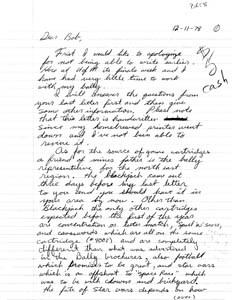 12-11-78 ①
Dear Bob,
First I would like to apologize
for not being able to write earlier.
Here at it's finals week and I
have had very little time to work
with my bally.
I will answer the questions from
your last letter first and then give
some other information. Please note
that this letter is handwritten
since my homebrewed printer went
down and I've not been able to
revive it.
As for the source of game cartridges
a friend of mines father is the bally
representative for the north east
region. The blackjack came out
three days before my last letter
to you and you should have it in
your area by now. Other than
Blackjack the only other cartridges
expected before the first of the year
are concentration or letter match, "spell'n' score",
and crosswords which are all on the same
cartridge and are completely
different than what was advertised
in the Bally brochures, also football
which promises to be great and star wars
which is an offshoot to "Space Race" which
was to be with clowns and
the fate of Star Wars depends on how
(over)
cash